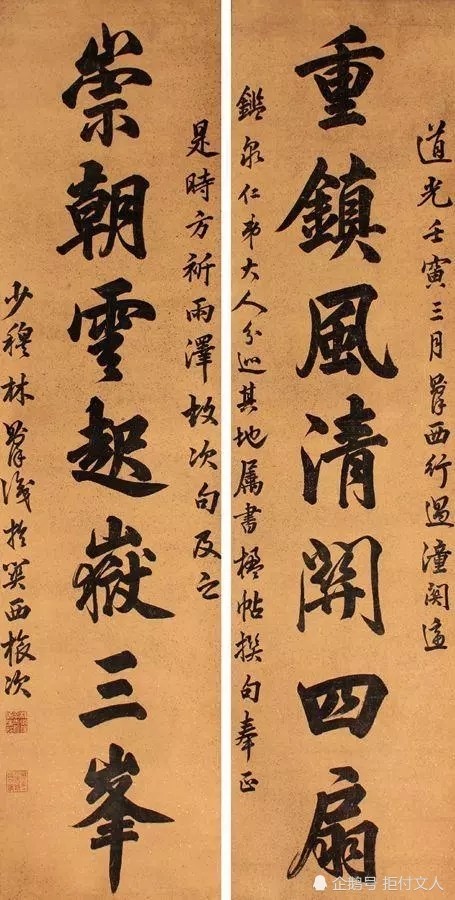 道光壬寅三月則徐西行過潼關適
重鎮風清關四扇
鑑泉仁弟大人分巡其地屬書楹帖撰句奉正
是時方祈雨澤故次句及之
崇朝雲起嶽三峯
少穆林則徐識於關西旅次
企鹅号 拒付文人